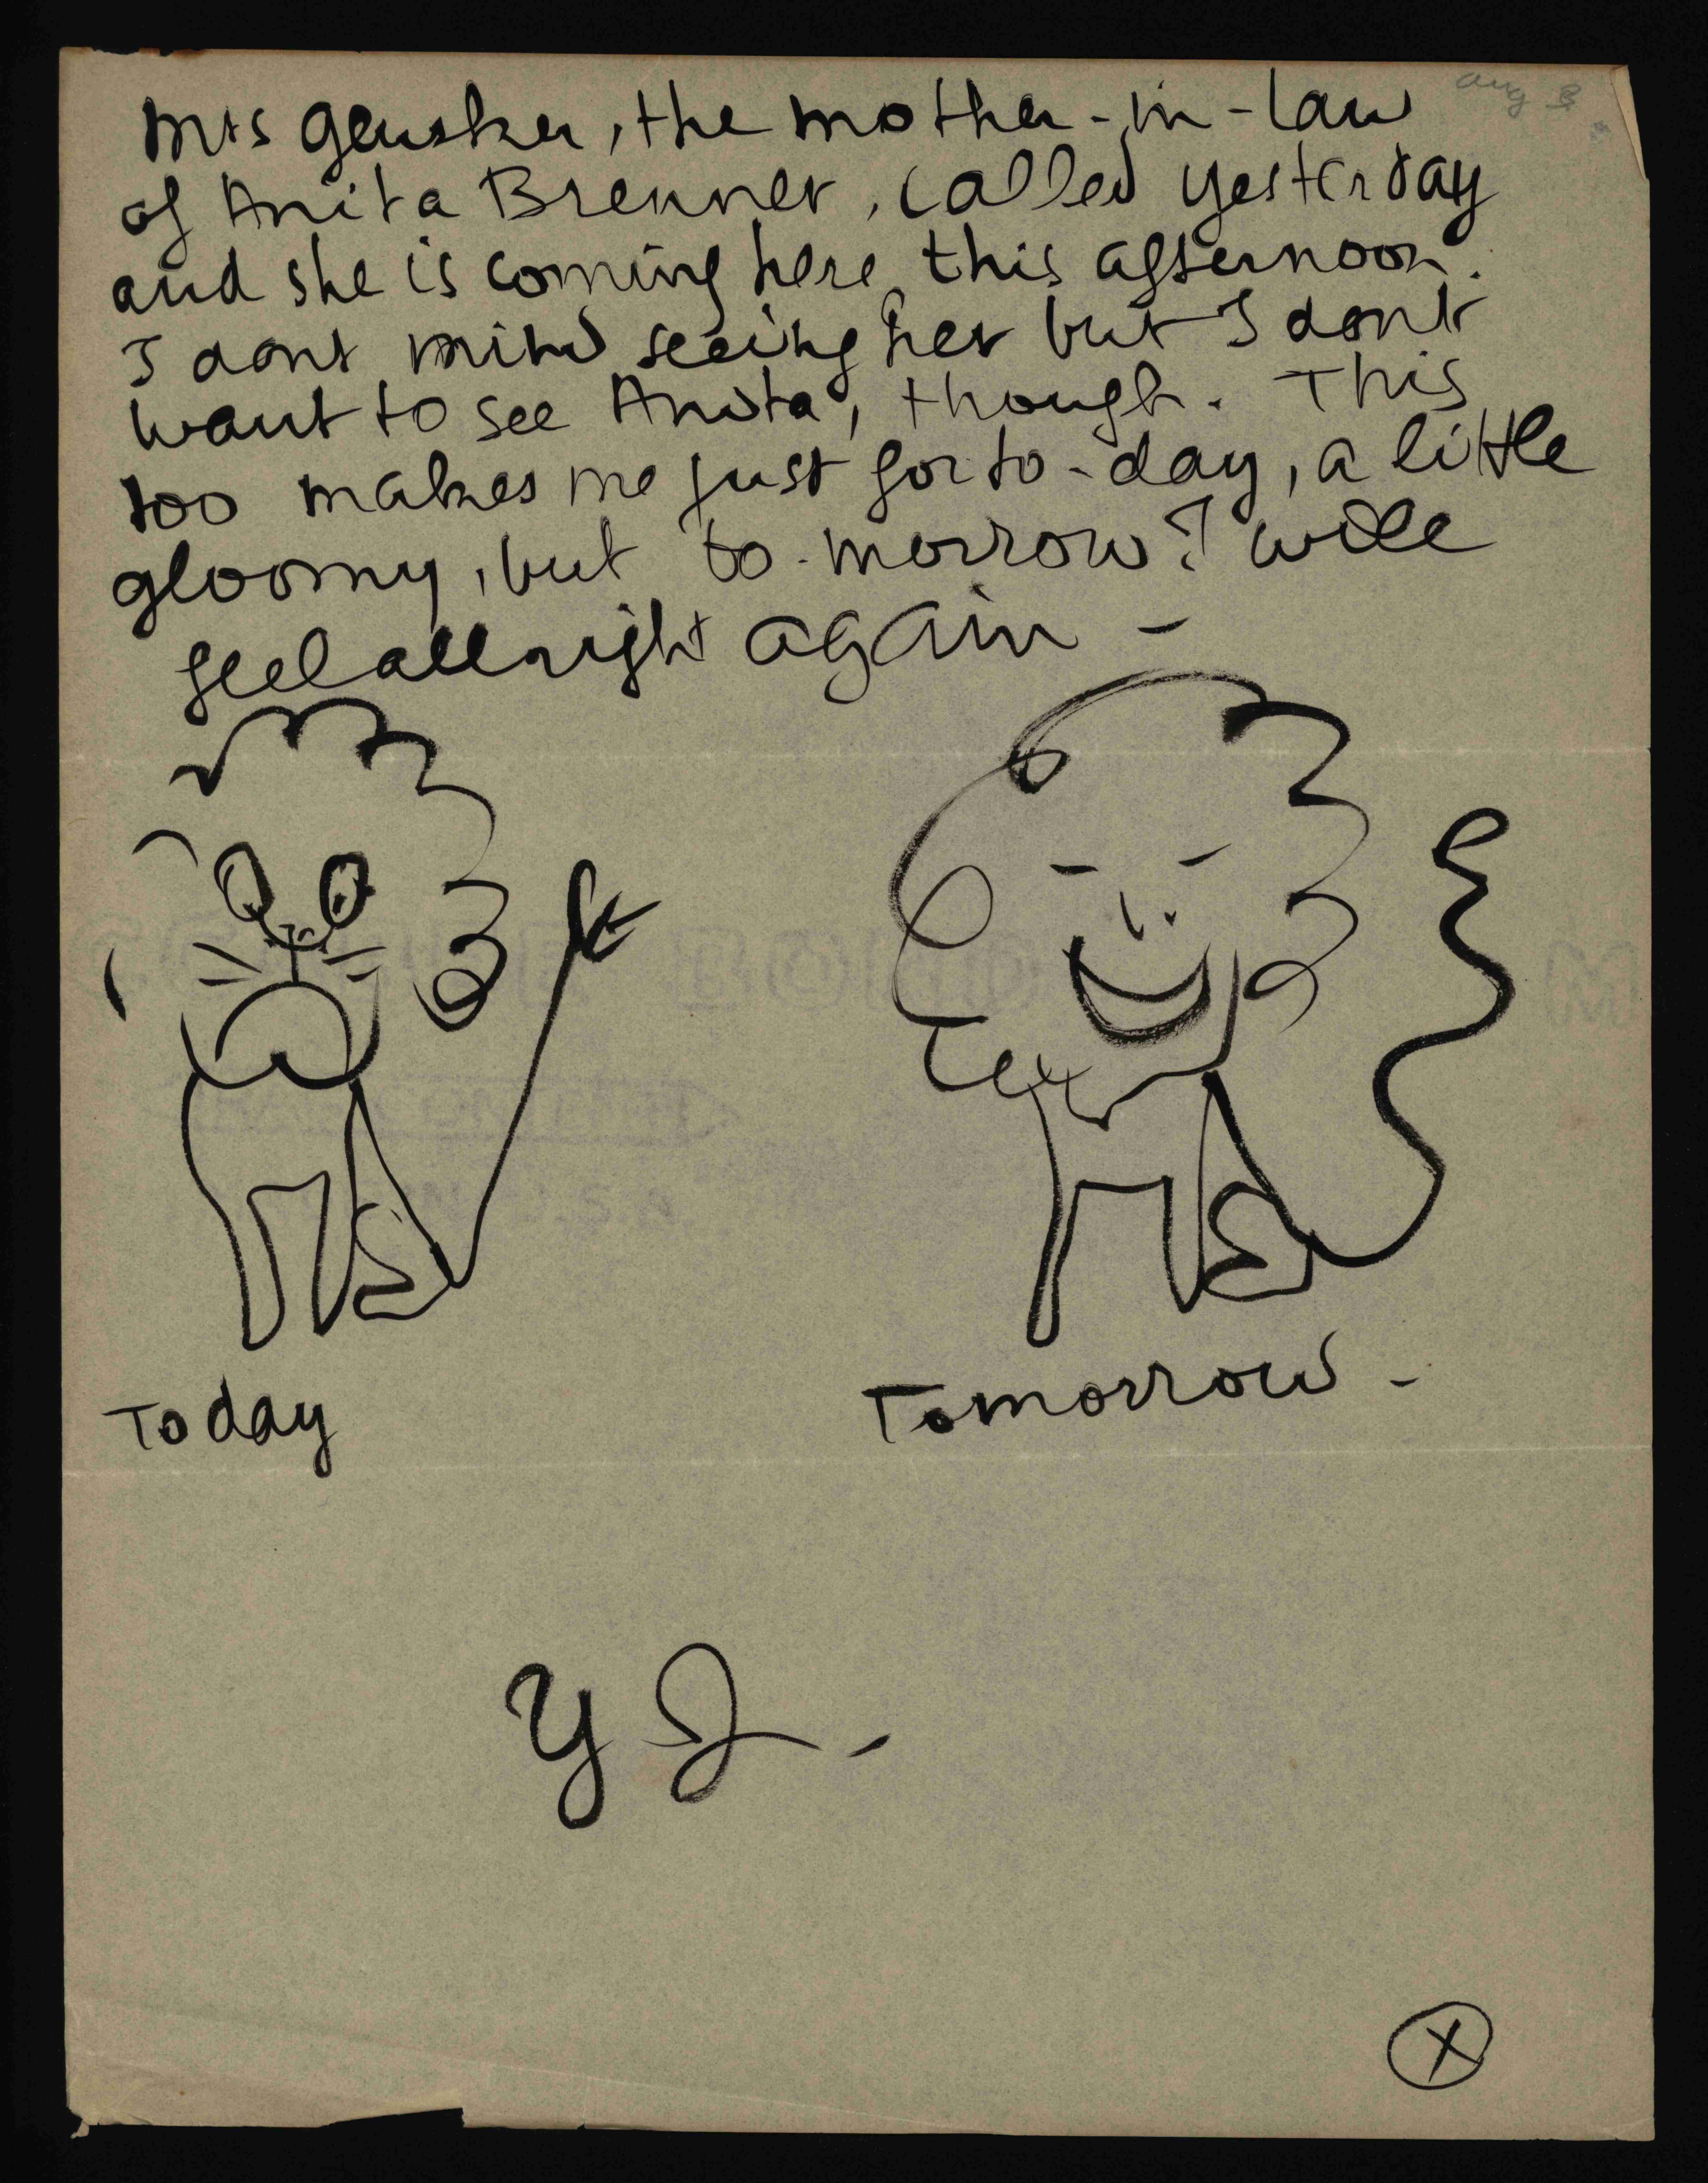 aug 3
Mrs Glusker, the mother-in-law
of Anita Brenner, called yesterday
and she is coming here this afternoon.
I dont mind seeing her but I dont
want to see Anita, though. This
too makes me just for to-day, a little
gloomy, but to-morrow I will
feel allright again –
Today
Tomorrow –
X